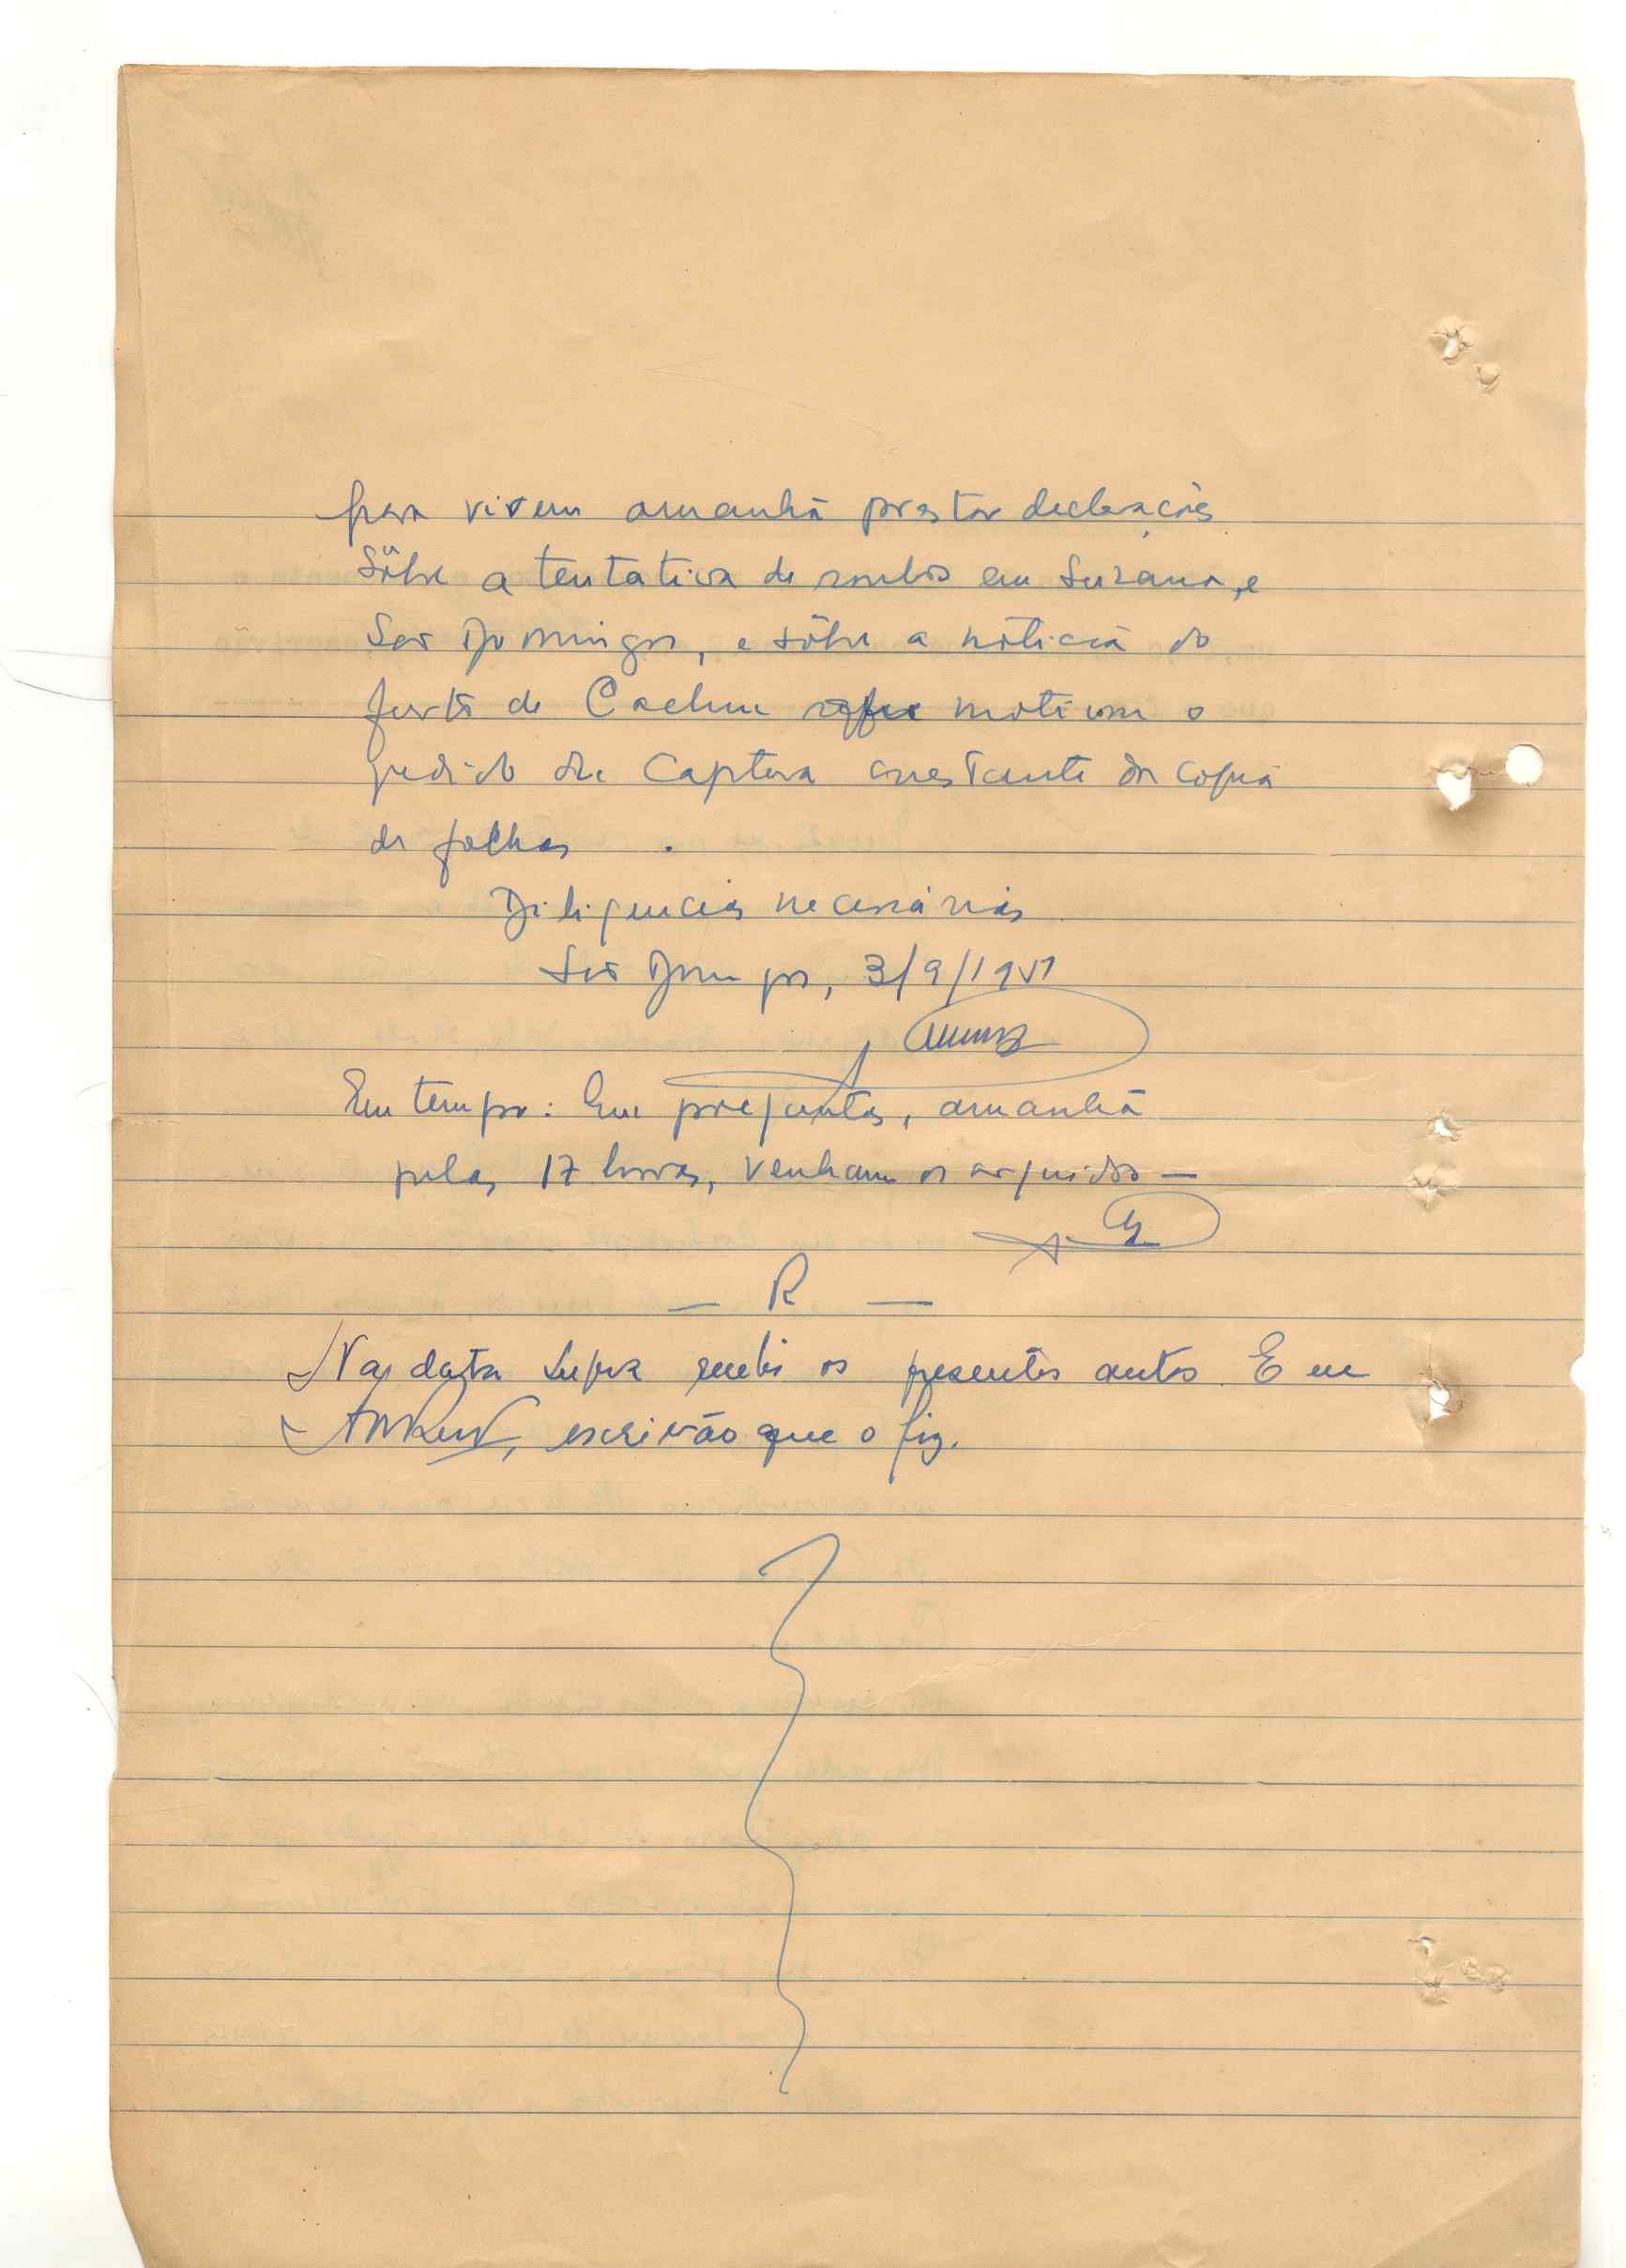 para virem amanhã prestar declarações
Sôbre a tentativa de roubo em Suzana, e
São Domingos, e sôbre a notícia do
furto de Cacheu que motivou o
pedido de Captura constante da copia
de folhas .
Diligencias necessárias
São Domingos, 3/9/19
Em tempo: Em perguntas, amanhã
pelas 17 horas, venham os arguidos —
— R —
Na data supra recebi os presentes autos. E eu
, escrivão que o fiz.